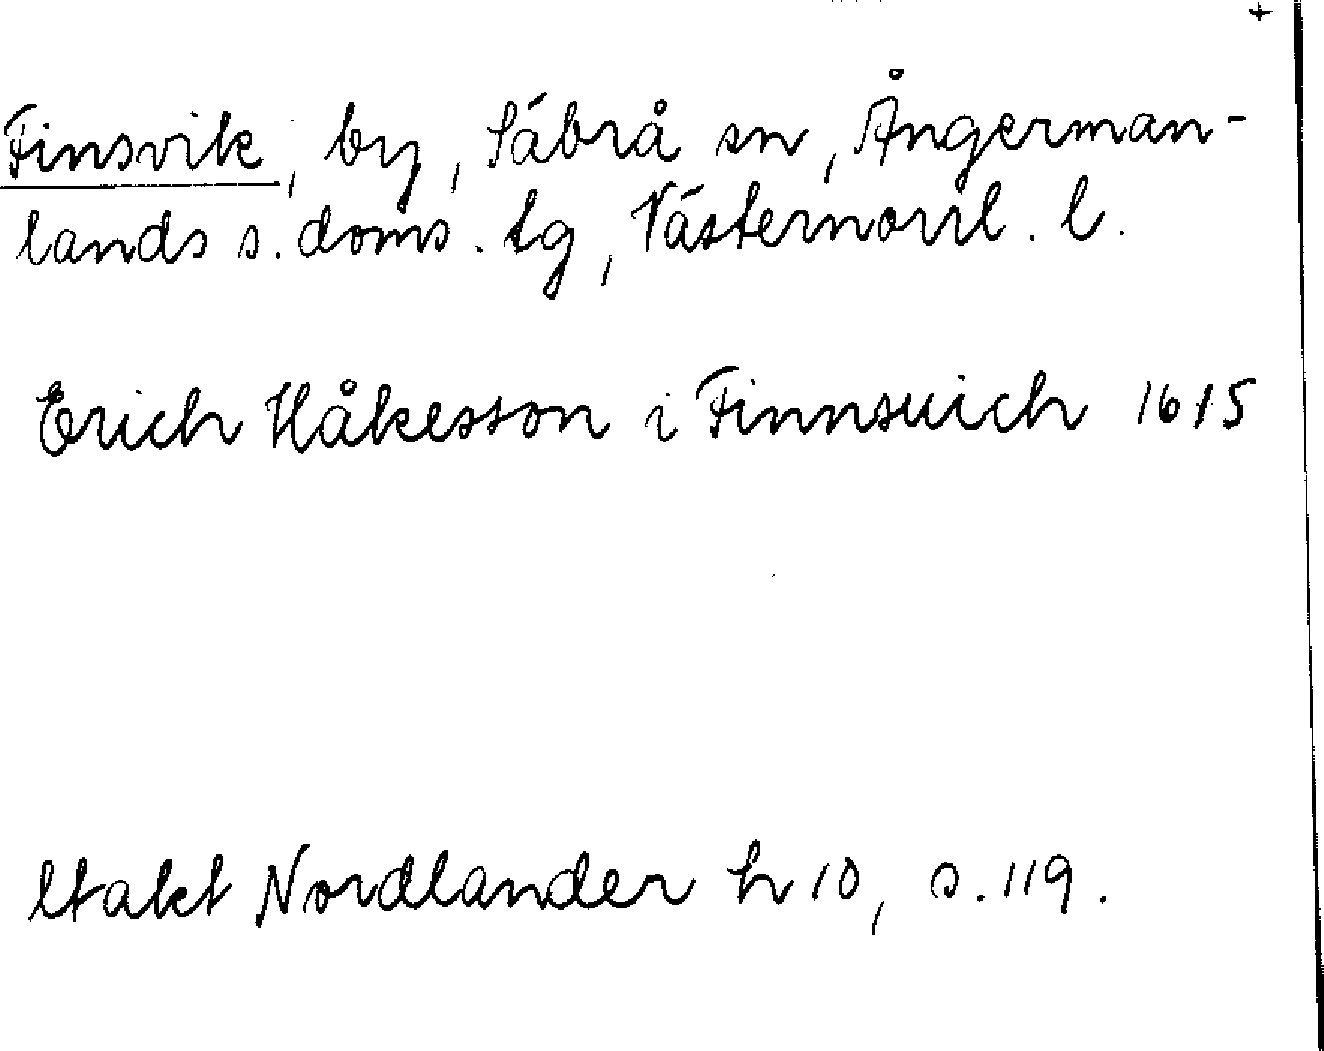 +
Finsvik, by, Säbrå sn, Ångerman-
lands s. doms. tg, Västernorrl. l.
Erich Håkesson i Finnsuich 1615
Utakt Nordlander h 10, s. 119.